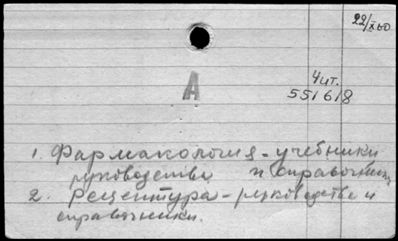 22/XII60
А
Чит.
55/6/8
1. Фармакология - учебники
руководства и справочники
2. Рецептура - руководства и
справочники.